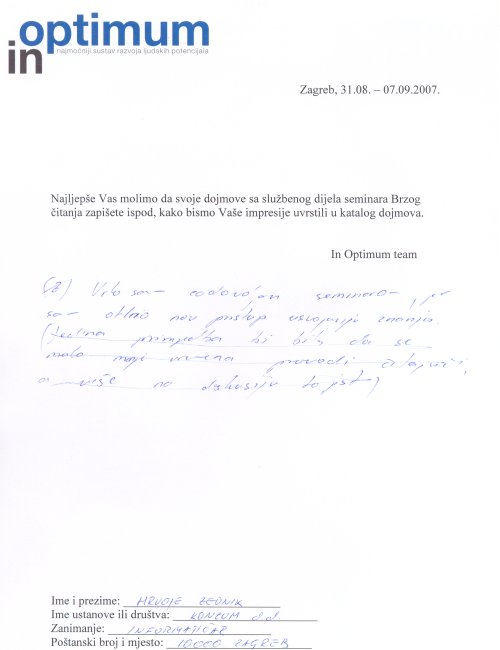 in optimum
najmoćniji sustav razvoja ljudskih potencijala
Zagreb, 31.08. – 07.09.2007.
Najljepše Vas molimo da svoje dojmove sa službenog dijela seminara Brzog
čitanja zapišete ispod, kako bismo Vaše impresije uvrstili u katalog dojmova.
In Optimum team
Vrlo sam zadovoljan seminarom, jer
sam otkrio nov pristup usvajanju znanja
(jedina primjedba bi bila da se
malo manje vremena provodi čitajući,
a više na diskusiju
Ime i prezime: HRVOJE ZEDNIK
Ime ustanove ili društva: KONZUM d.d.
Zanimanje: INFORMATIČAR
Poštanski broj i mjesto: 10000 ZAGREB